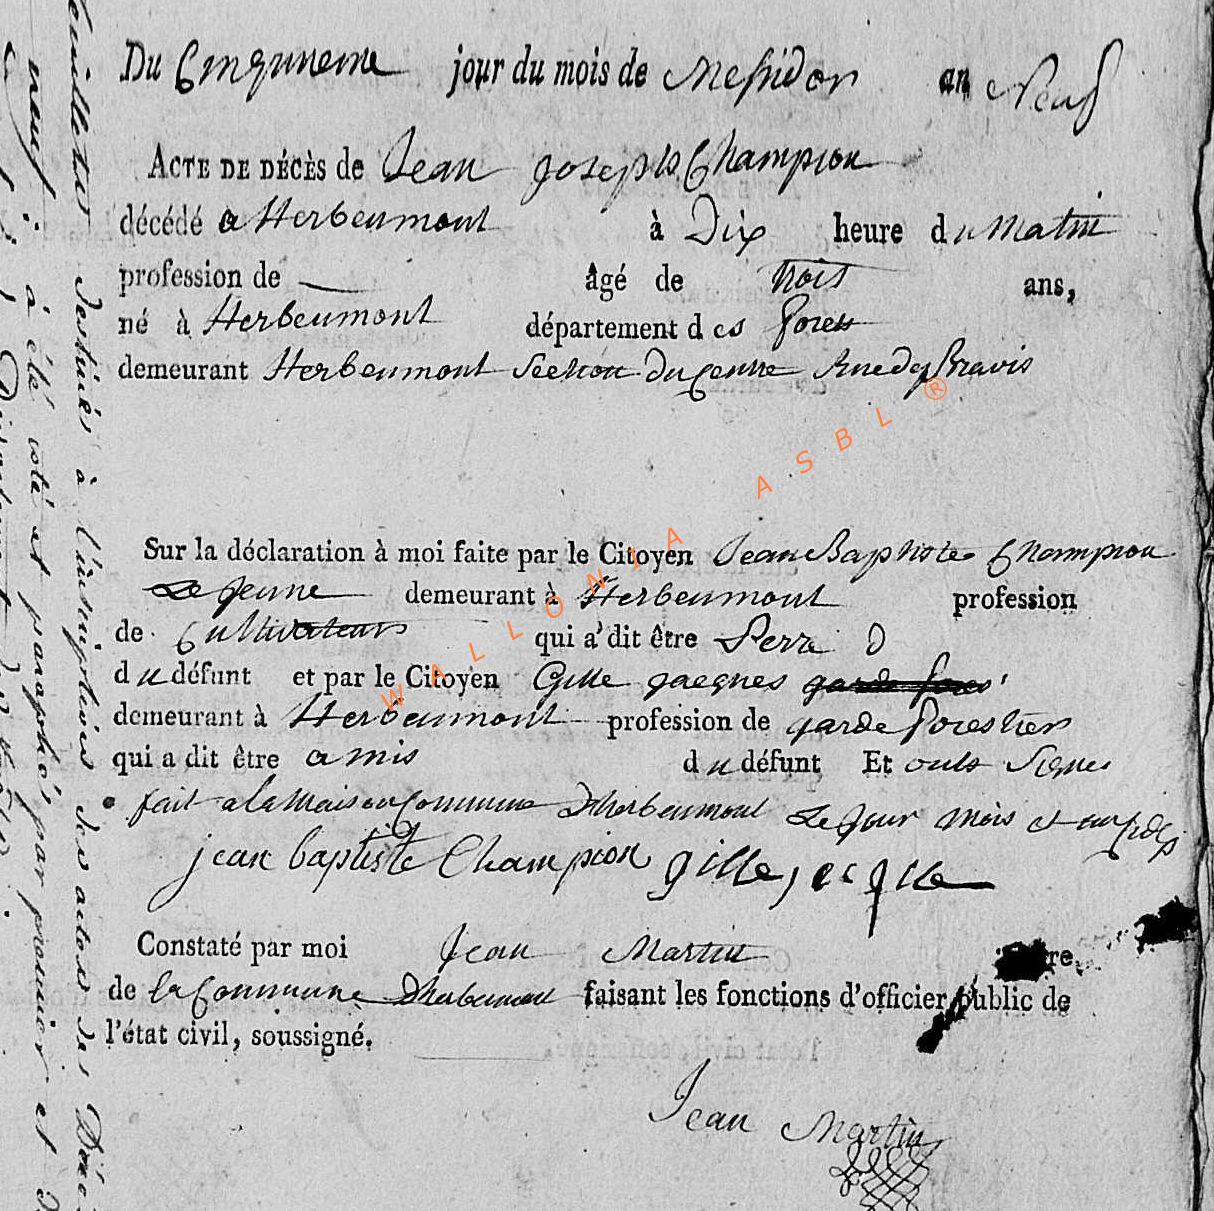 Du Cinquieme jour du mois de Messidor an Neuf
ACTE DE DÉCÈS de Jean joseph Champion
décédé a Herbeumont à Dix heure du Matin
profession de — âgé de trois ans,
né à Herbeumont département des foretts
demeurant Herbeumont Section du Centre Rue des
Sur la déclaration à moi faite par le Citoyen Jean Baptiste Champion
Le Jeune demeurant à Herbeumont profession
de Cultivateur qui a dit être Perre
du défunt et par le Citoyen Gille jacques
demeurant à Herbeumont profession de garde forestier
qui a dit être amis du défunt Et onts Signé
fait a la Maison Commune Dherbeumont Le jour mois et an
jean baptiste Champion gille
Constaté par moi Jean Martin
de la Commune Dherbeumont faisant les fonctions d'officier public de
l'état civil, soussigné.
Jean Martin
WALLONIA ASBL ®
destinés à l'inscription des actes de
neuf à été coté et paraphés par premier et